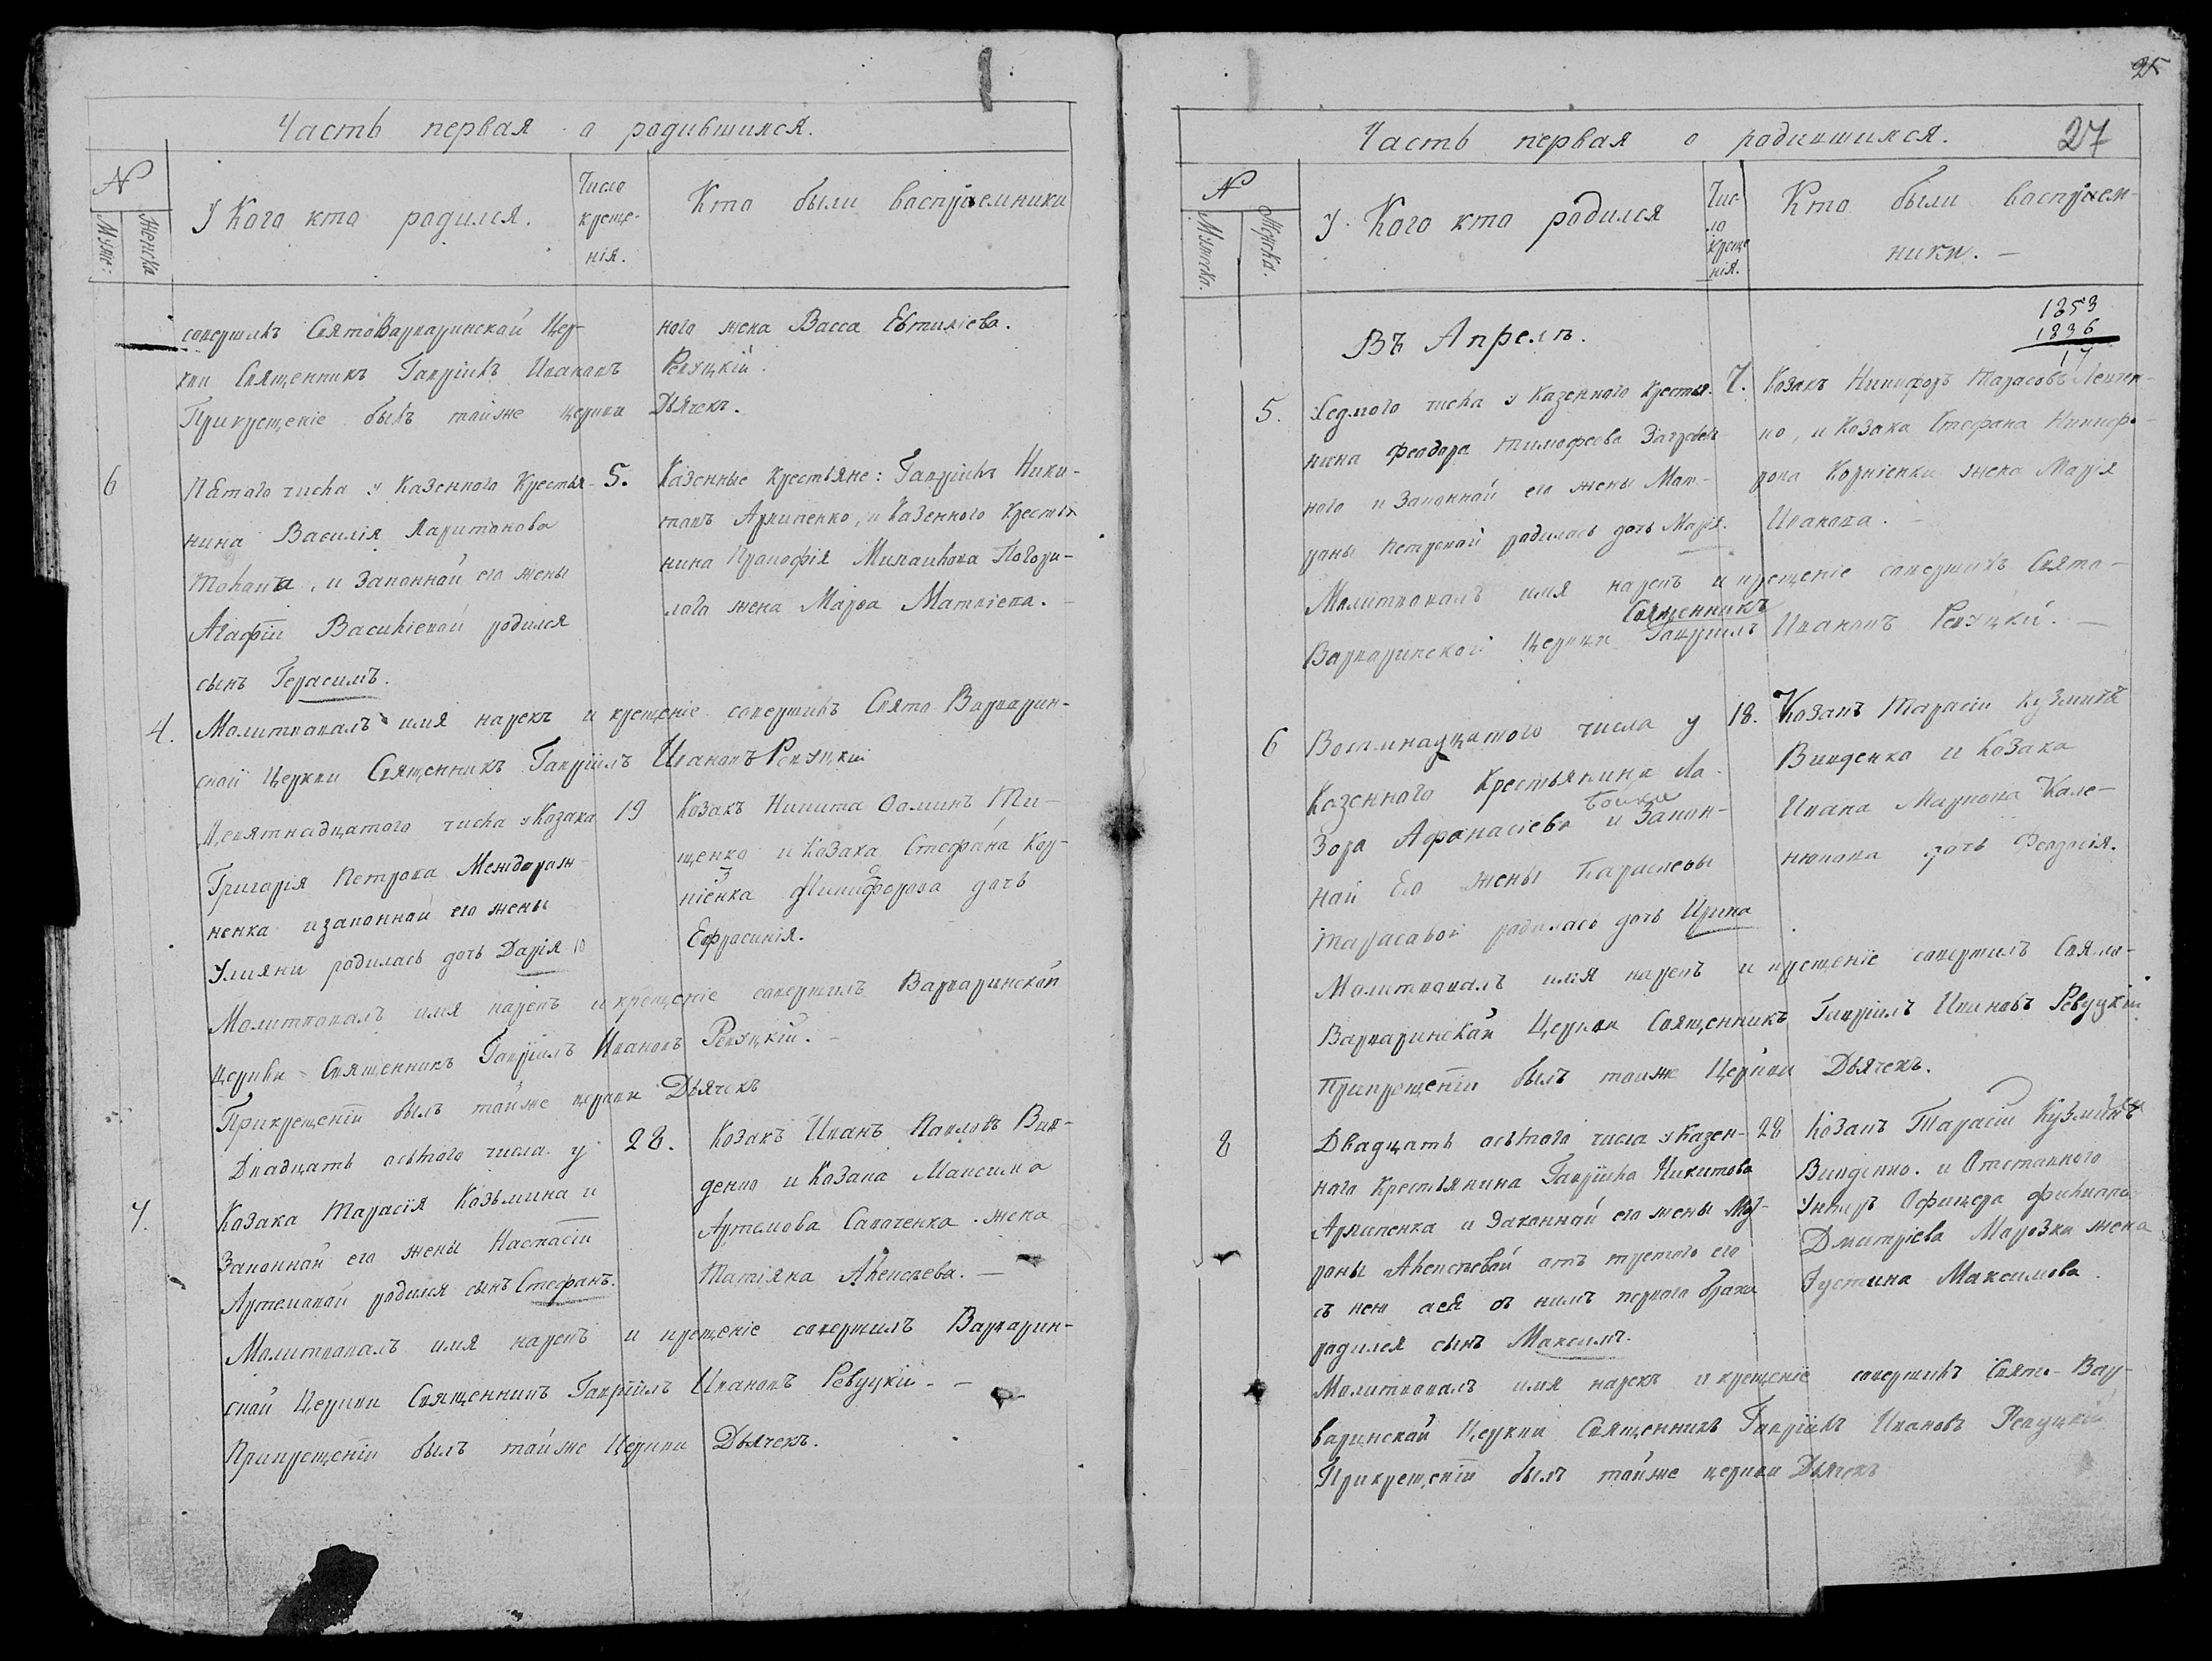 Часть первая о родившихся.
N
Муже:
Женска
У Кого кто родился.
Число
креще-
нія.
Кто были воспріемники
совершилъ СвятоВарваринской Цер-
кви Священникъ Гавріилъ Ивановъ
Прикрещеніе былъ тойже церкви
ного жена Васса Евтихіева.
Ревуцкій.
Дьячекъ.
6
Пятого числа у Казенного Крестья-
нина Василія Харитонова
и Законной его жены
Агафіи Василіевой родился
сынъ Герасимъ.
5.
Казенные крестьяне: Гавріилъ Ники-
товъ Архипенко, и Казенного Крестья
нина Прокофія Михаилова Погори-
лого жена Марѳа Матвіева.
Молитвовалъ имя нарекъ и крещеніе совершилъ Свято Варварин-
ской Церкви Священникъ Гавріилъ Ивановъ Ревуцкій
4.
Девятнадцатого числа у Козака
Григорія Петрова Междораж-
ненка и законной его жены
Улияни родилась дочь Дарія
19
Козакъ Никита Ѳоминъ Ти-
щенко и Козака Стефана Кор-
ніенка Никифорова дочь
Ефросинія.
Молитвовалъ имя нарекъ и крещеніе совершилъ Варваринской
Церкви Священникъ Гавріилъ Ивановъ Ревуцкій.
Прикрещеніи былъ тойже церкви Дьячекъ
7.
Двадцать осьмого числа у
Козака Тарасія Козьмина и
Законной его жены Настасіи
Артемовой родился сынъ Стефанъ.
28.
Козакъ Иванъ Павловъ Вив-
денко и Козака Максима
Артемова Сапоченка жена
Татіяна Алексѣева.
Молитвовалъ имя нарекъ и крещеніе совершилъ Варварин-
ской Церкви Священникъ Гавріилъ Ивановъ Ревуцкій
Прикрещеніи былъ тойже Церкви Дьячекъ.
25
Часть первая о родившихся.
27
N
Мужеска.
Женска.
У Кого кто родился
Чис-
ло
креще
нія.
Кто были воспріем-
ники.
Въ Апрелѣ.
1853
1836
17
5.
Седмого числа у Казенного Крестья-
нина Феодора Тимофеева
ного и Законной его жены Мот-
роны Петровой родилась дочь Марія.
7.
Козакъ Никифоръ Тарасовъ Левчен-
ко, и Козака Стефана Никифо-
рова Корніенки жена Марія
Иванова.
Молитвовалъ имя нарекъ и крещеніе совершилъ Свято-
Священникъ
Варваринской Церкви Гавріилъ Ивановъ Ревуцкій.
6
Восемнадцатого числа у
Казенного Крестьянина Ла-
Бойка
зора Афанасіева и Закон-
ной Его жены Параскевы
Тарасовой родилась дочь Ирина
18.
Козакъ Тарасій Кузминъ
Вивденко и Козака
Ивана Маркова Кале-
нюкова дочь Феодосія.
Молитвовалъ имя нарекъ и крещеніе совершилъ Свято-
Варваринской Церкви Священникъ Гавріилъ Ивановъ Ревуцкій
Прикрещеніи былъ тойже Церкви Дьячекъ.
8
Двадцать осьмого числа у Казен-
ного Крестьянина Гавріила Никитова
Архипенка и Законной его жены Мот-
роны Алексѣевой отъ третого его
съ нею а ея съ нимъ первого брака
родился сынъ Максимъ.
28
Козакъ Тарасій Кузминъ
Вивденко. и Отставного
Унтеръ Офицера
Дмитріева Морозки жена
Іустина Максимова.
Молитвовалъ имя нарекъ и крещеніе совершилъ Свято-Вар-
варинской Церкви Священникъ Гавріилъ Ивановъ Ревуцкій
Прикрещеніи былъ тойже церкви Дьячекъ